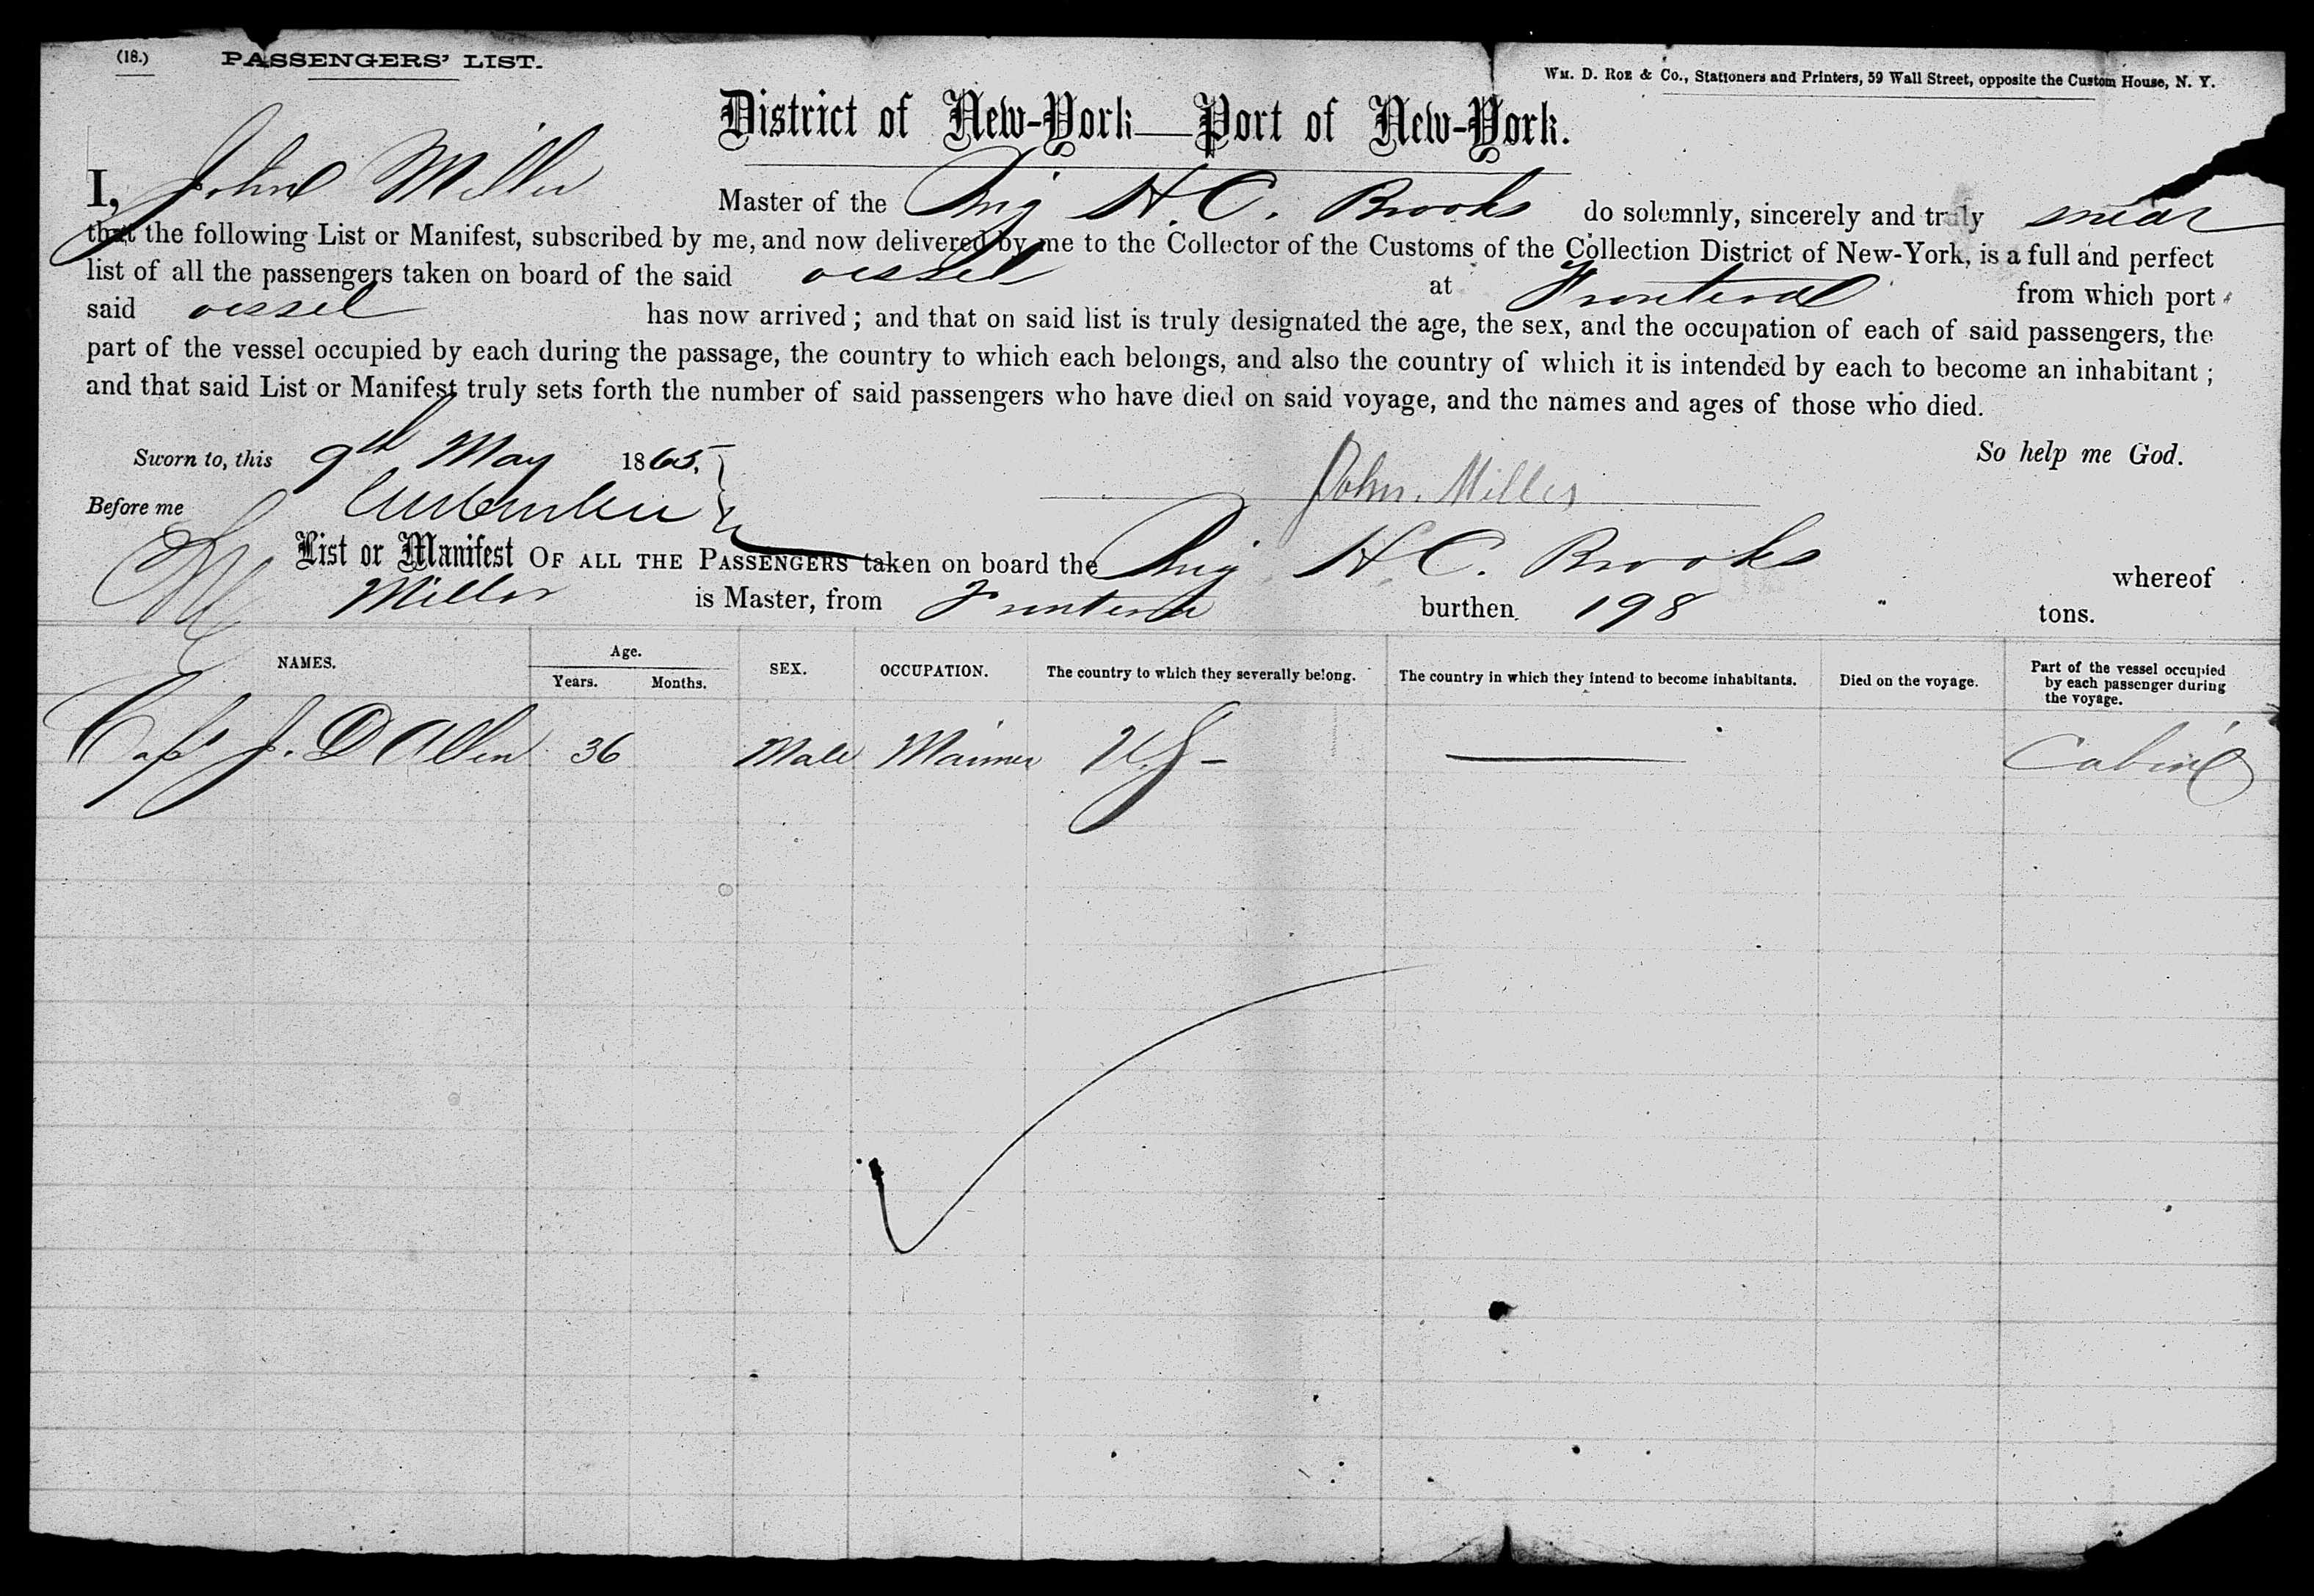 (18.) PASSENGERS' LIST.
Wm. D. Roe & Co., Stationers and Printers, 59 Wall Street, opposite the Custom House, N. Y.
District of New-York—Port of New-York.
I, John Miller Master of the Brig H. C. Brooks do solemnly, sincerely and truly swear
that the following List or Manifest, subscribed by me, and now delivered by me to the Collector of the Customs of the Collection District of New-York, is a full and perfect
list of all the passengers taken on board of the said vessel at Frontera from which port
said vessel has now arrived; and that on said list is truly designated the age, the sex, and the occupation of each of said passengers, the
part of the vessel occupied by each during the passage, the country to which each belongs, and also the country of which it is intended by each to become an inhabitant;
and that said List or Manifest truly sets forth the number of said passengers who have died on said voyage, and the names and ages of those who died.
So help me God.
Sworn to, this 9th May 1865.
John. Miller
Before me
List or Manifest OF ALL THE PASSENGERS taken on board the Brig H. C. Brooks whereof
Miller is Master, from Frontera burthen 198 tons.
NAMES. Age. Years. Months. SEX. OCCUPATION. The country to which they severally belong. The country in which they intend to become inhabitants. Died on the voyage. Part of the vessel occupied by each passenger during the voyage.
Capt J. D Allen 36 Male Mariner U.S— — Cabin